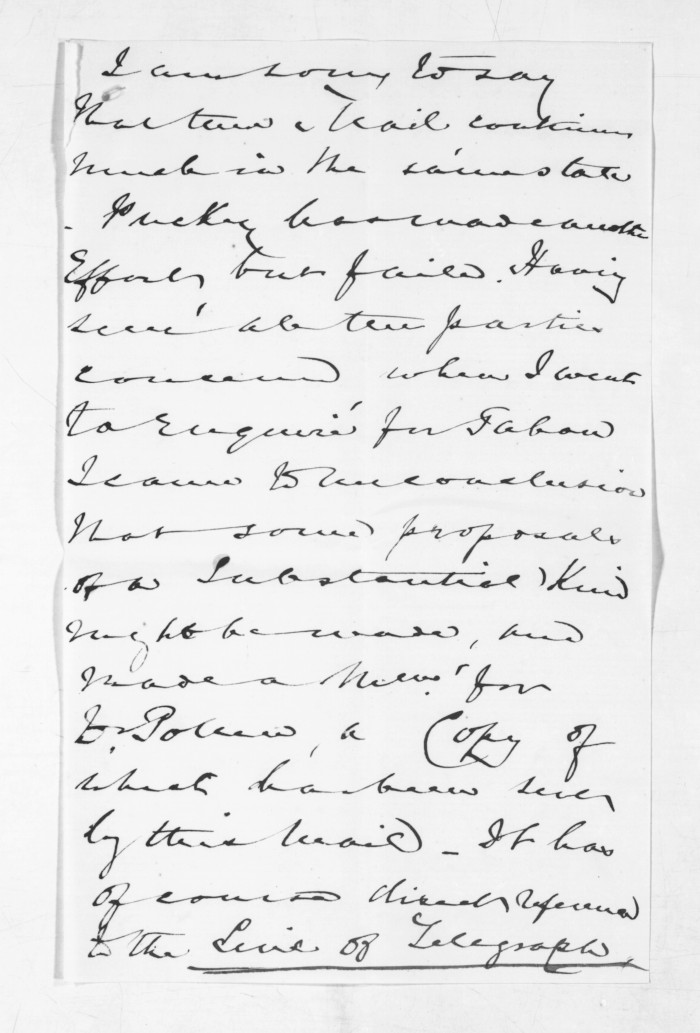 I am sorry to say
that the Road continues
much in the same state
- Puckey has made another
Effort, but failed. Having
seen all the parties
concerned when I went
to Enquire for
I came to the conclusion
that some proposals
of a Substantial Kind
might be made, and
made a Mem: for
Dr Pollen, a Copy of
which has been sent
by this Mail - It has
of course direct reference
to the Line of Telegraph.